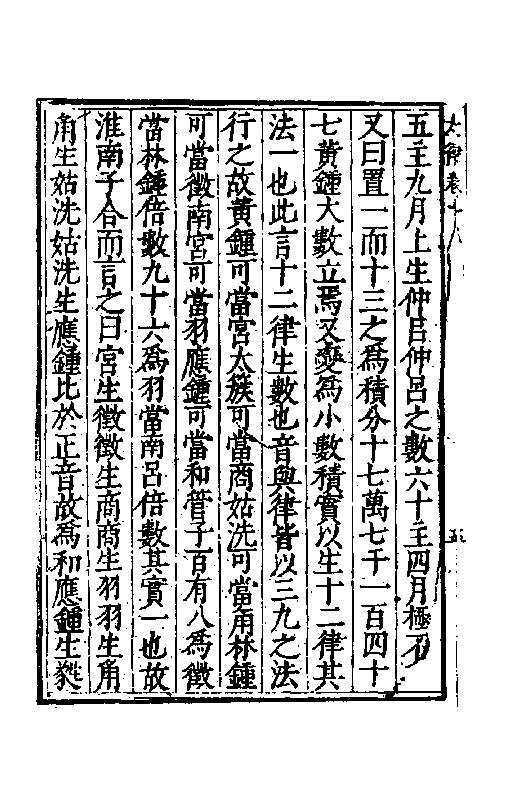 五主九月上生仲呂仲呂之數六十主四月極不
又曰置一而十三之爲積分十七萬七千一百四十
七黃鍾大數立焉又變爲小數積實以生十二律其
法一也此言十二律生數也音與律皆以三九之法
行之故黃鍾可當宮太簇可當商姑洗可當角林鍾
可當徵南宮可當羽應鍾可當和管子百有八爲徵
當林鍾倍數九十六爲羽當南呂倍數其實一也故
淮南子合而言之曰宮生徵徵生商商生羽羽生角
角生姑洗姑洗生應鍾比於正音故爲和應鍾生㽔